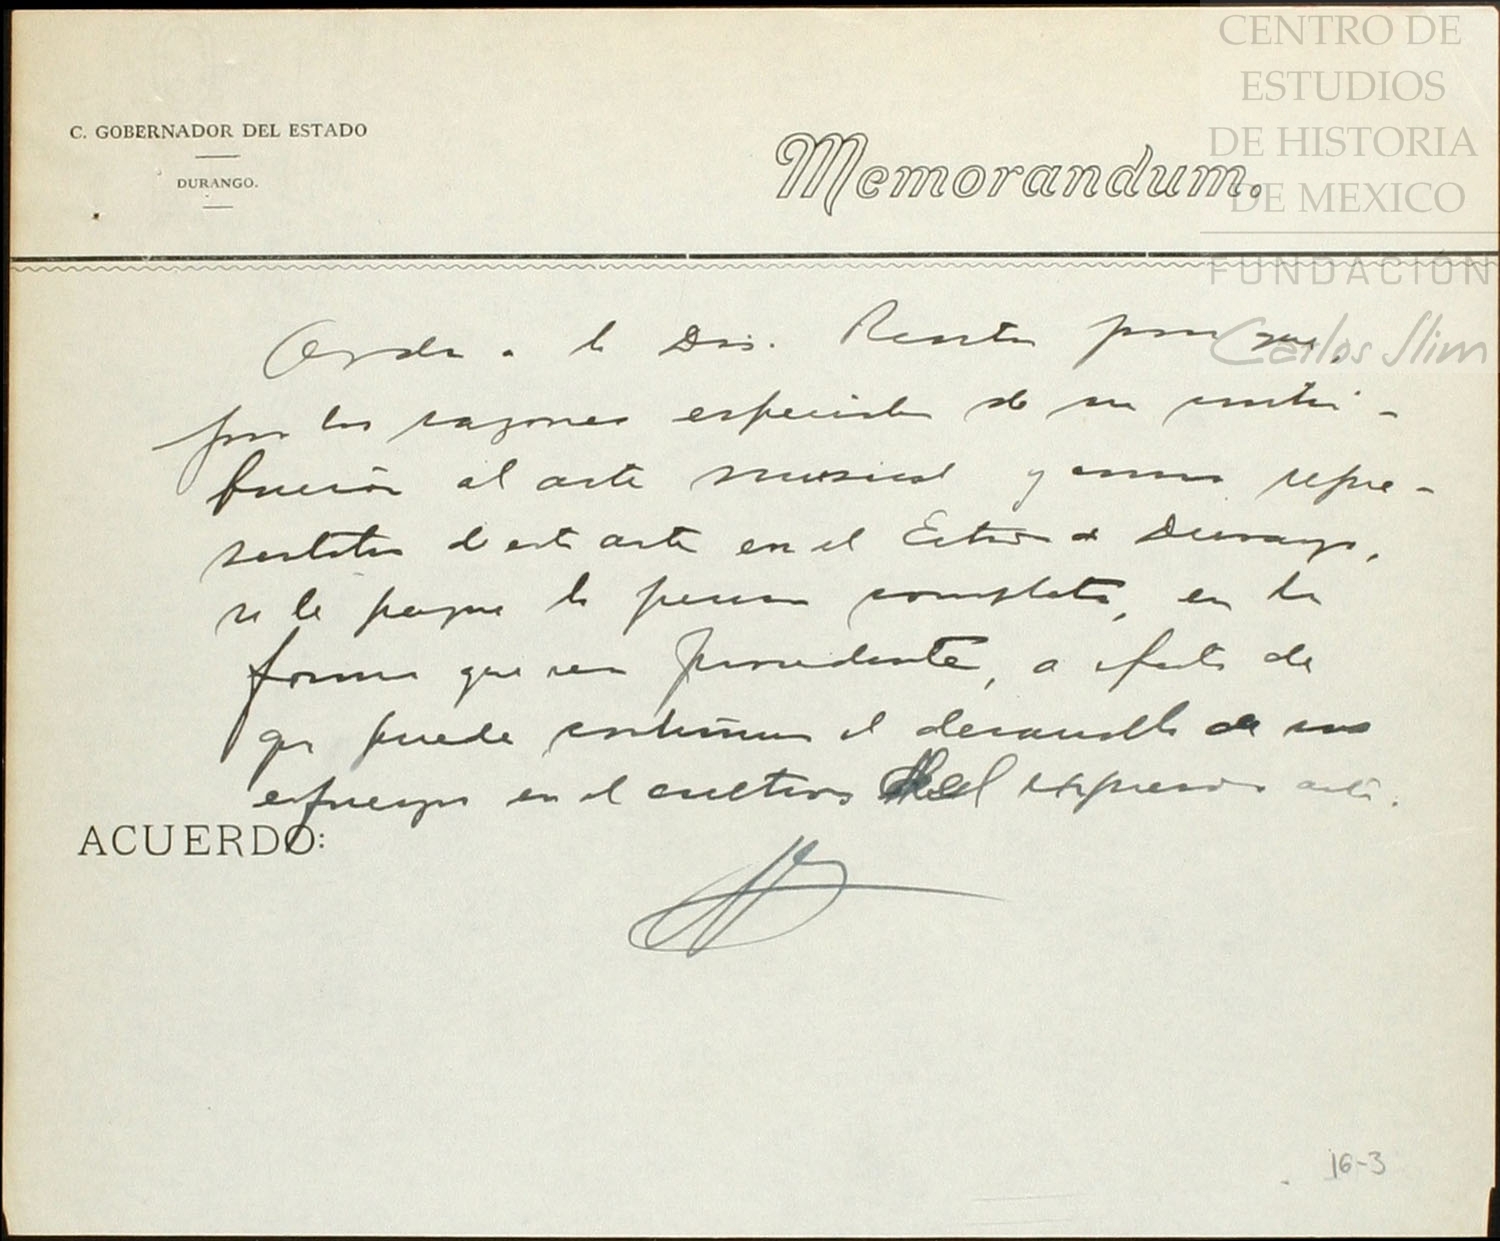 CENTRO DE
ESTUDIOS
DE HISTORIA
DE MEXICO
FUNDACIÓN
Carlos Slim
C. GOBERNADOR DEL ESTADO
DURANGO.
Memorandum.
Orden a la Dir. Rentas para que,
por las razones especiales de su contri-
bución al arte musical y como repre-
sentativo de este arte en el Estado de Durango,
se le pague la pension completa, en la
forma que sea procedente, a efecto de
que puede continuar el desarrollo de sus
esfuerzos en el cultivo del expresado arte.
ACUERDO:
16-3